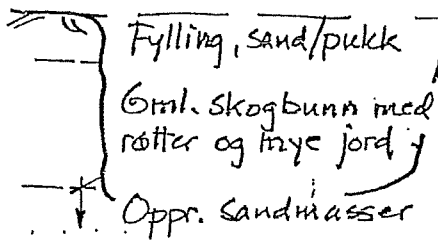 Fylling, sand/pukk
Gml. skogbunn med
røtter og mye jord
Oppr. sandmasser